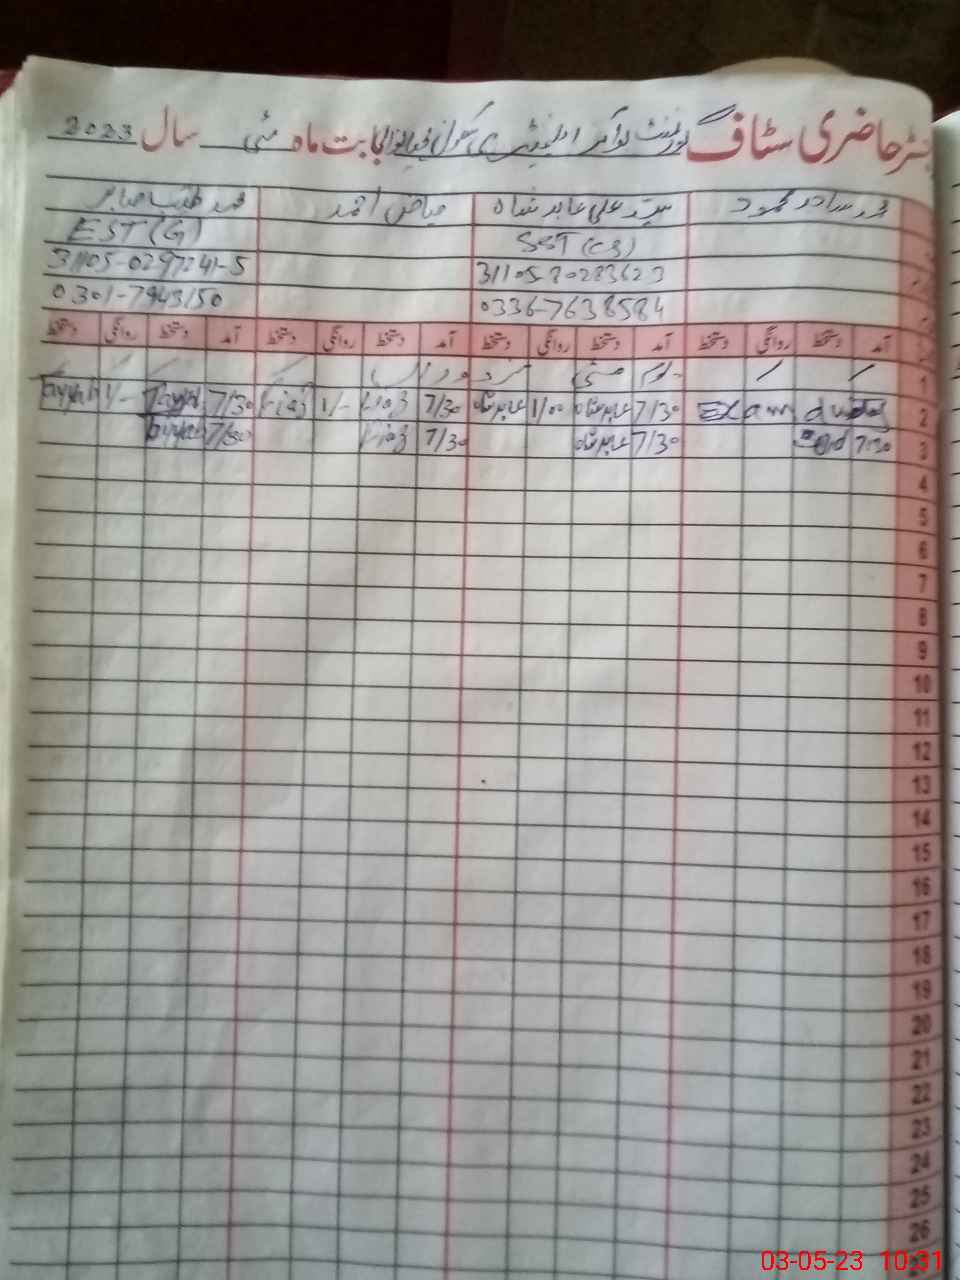 رجسٹر حاضری سٹاف گورنمنٹ بوائز ایلیمنٹری سکول بابت ماہ مئی سال 2023
محمد ساجد محمود سید علی عابد شاہ فیاض احمد محمد طیب صابر
SST (CS) EST (G)
31105-0297241-5
0301-7943150 0336-7638584
آمد دستخط روانگی دستخط آمد دستخط روانگی دستخط آمد دستخط روانگی دستخط آمد دستخط روانگی دستخط
1 یوم مئی مزدوراں
2 Exam duty 7/30 عابد شاہ 1/00 عابد شاہ 7/30 Fiaz 1/- Fiaz 7/30 Tayyab 1/- Tayyab
3 7:30 7/30 عابد شاہ 7/30 Fiaz 7/30 Tayyab
4
5
6
7
8
9
10
11
12
13
14
15
16
17
18
19
20
21
22
23
24
25
26
03-05-23 10:31